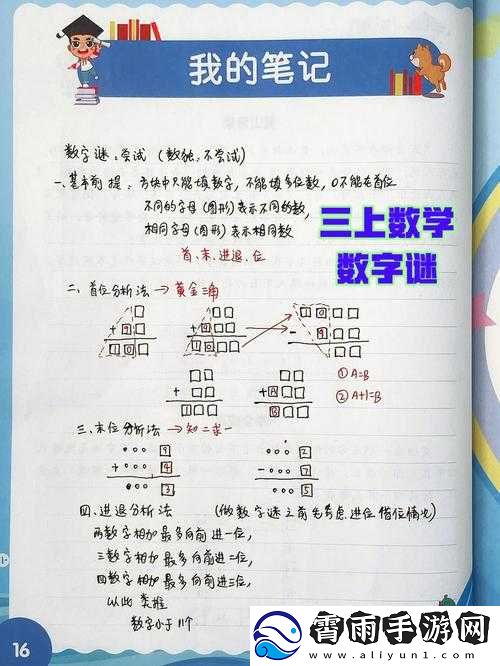 我的笔记
数字谜:尝试(数独:不尝试)
一、基本前提:方块中只能填数字,不能填多位数,0不能在首位
不同的字母(图形)表示不同的数,
相同字母(图形)表示相同数
首、末、进退、位
三上数学
数字谜
二、首位分析法→黄金三角
+ 9
1 0
+ 9
1 0
1 0
- 9
1
+ A
B
① A=B
② A+1=B
三、末位分析法→知二求一
9
+ 4
3
2
- 7
5
四、进退分析法 (做数字谜之前先考虑进位借位情况)
两数字相加最多向前进一位,
三数字相加最多向前进二位,
四数字相加最多向前进三位,
以此类推
数字小于11个
16
霄雨手游网
www.aliyun1.com